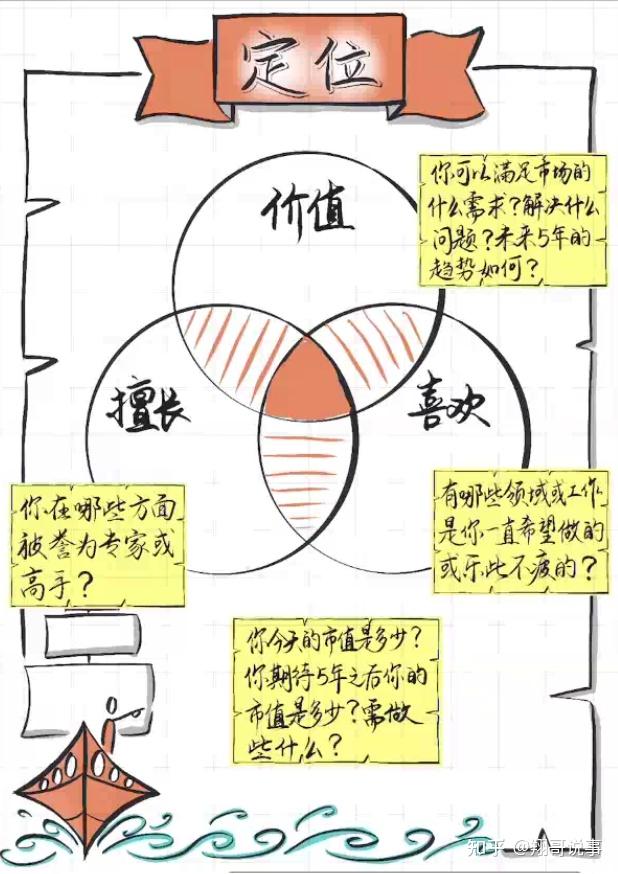 定位
价值
你可以满足市场的
什么需求？解决什么
问题？未来5年的
趋势如何？
擅长
喜欢
你在哪些方面
被誉为专家或
高手？
有哪些领域或工作
是你一直希望做的
或乐此不疲的？
你今天的市值是多少？
你期待5年之后你的
市值是多少？需做
些什么？
知乎 @翔哥说事